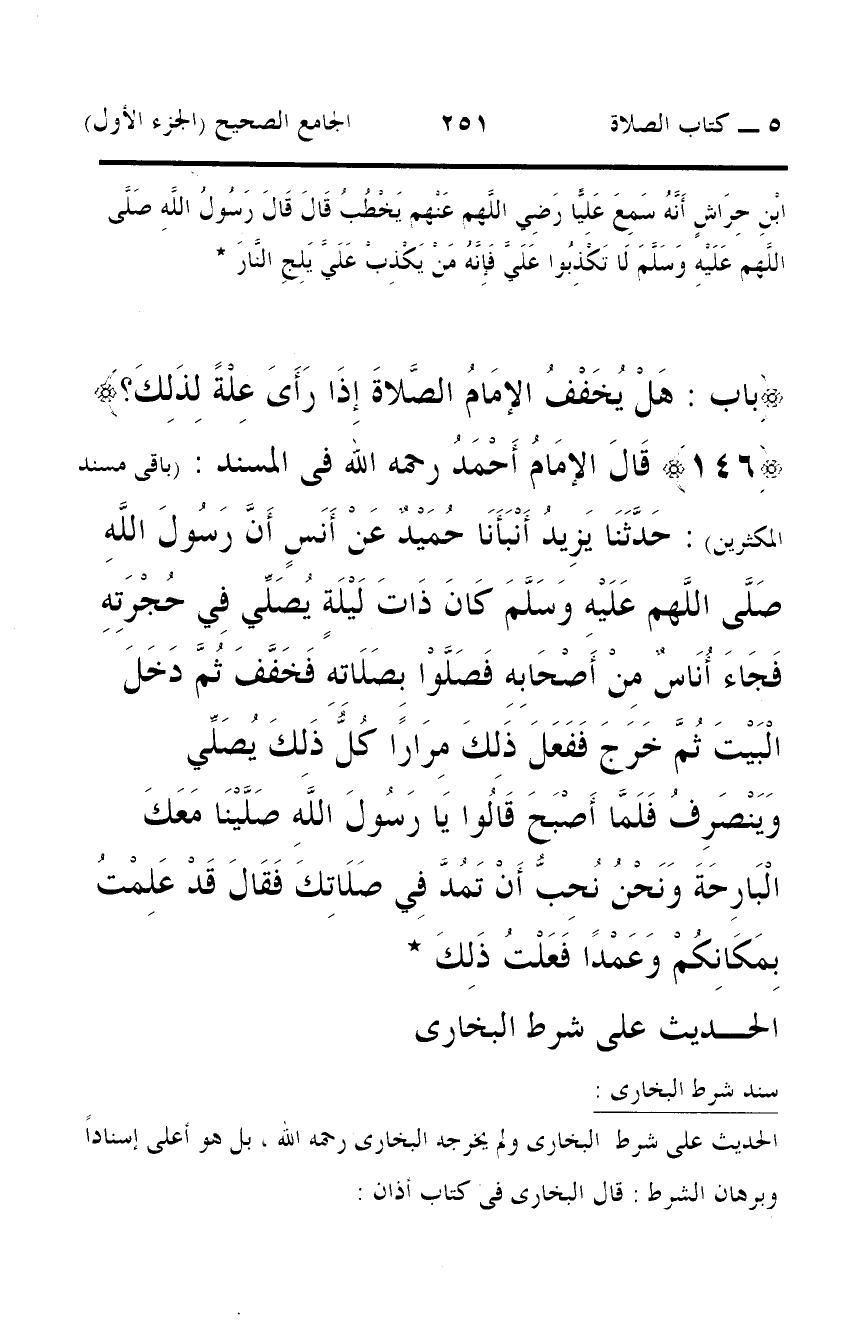 ٥ ــ كتاب الصلاة ٢٥١ الجامع الصحيح (الجزء الأول)
ابْنِ حِرَاشٍ أَنَّهُ سَمِعَ عَلِيًّا رَضِي اللَّهم عَنْهم يَخْطُبُ قَالَ قَالَ رَسُولُ اللَّهِ صَلَّى
اللَّهم عَلَيْهِ وَسَلَّمَ لَا تَكْذِبُوا عَلَيَّ فَإِنَّهُ مَنْ يَكْذِبْ عَلَيَّ يَلِجِ النَّارَ *
﴿باب : هَلْ يُخَفِّفُ الإمَامُ الصَّلَاةَ إِذَا رَأَىَ عِلَّةً لِذَلِكَ؟﴾
﴿١٤٦﴾ قَالَ الإمَامُ أَحْمَدُ رحمه الله فى المسند : (باقى مسند
المكثرين) : حَدَّثَنَا يَزِيدُ أَنْبَأَنَا حُمَيْدٌ عَنْ أَنَسٍ أَنَّ رَسُولَ اللَّهِ
صَلَّى اللَّهم عَلَيْهِ وَسَلَّمَ كَانَ ذَاتَ لَيْلَةٍ يُصَلِّي فِي حُجْرَتِهِ
فَجَاءَ أُنَاسٌ مِنْ أَصْحَابِهِ فَصَلَّوْا بِصَلَاتِهِ فَخَفَّفَ ثُمَّ دَخَلَ
الْبَيْتَ ثُمَّ خَرَجَ فَفَعَلَ ذَلِكَ مِرَارًا كُلُّ ذَلِكَ يُصَلِّي
وَيَنْصَرِفُ فَلَمَّا أَصْبَحَ قَالُوا يَا رَسُولَ اللَّهِ صَلَّيْنَا مَعَكَ
الْبَارِحَةَ وَنَحْنُ نُحِبُّ أَنْ تَمُدَّ فِي صَلَاتِكَ فَقَالَ قَدْ عَلِمْتُ
بِمَكَانِكُمْ وَعَمْدًا فَعَلْتُ ذَلِكَ *
الحـــديث على شرط البخارى
سند شرط البخارى :
الحديث على شرط البخارى ولم يخرجه البخارى رحمه الله ، بل هو أعلى إسناداً
وبرهان الشرط : قال البخارى فى كتاب أذان :